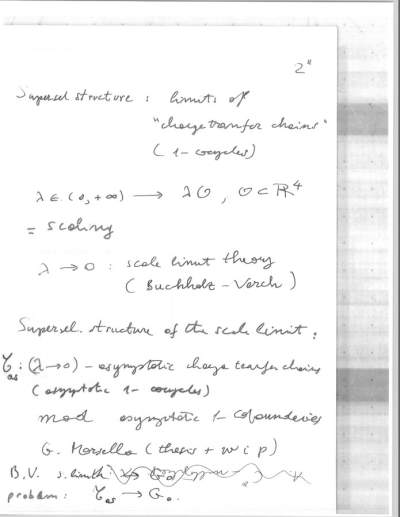 2"
Supersel. structure : limits of
"charge transfer chains"
( 1 - cocycles)
λ ∈ (0, +∞) ⟶ λ O , O ⊂ ℝ⁴
= scaling
λ → 0 : scale limit theory
( Buchholz - Verch )
Supersel. structure of the scale limit :
as : (λ → 0) - asymptotic charge transfer chains
(asymptotic 1 - cocycles)
mod asymptotic 1 - coboundaries
G. Morsella ( thesis + w i p )
B.V. s. limit :
problem : as → G₀ .